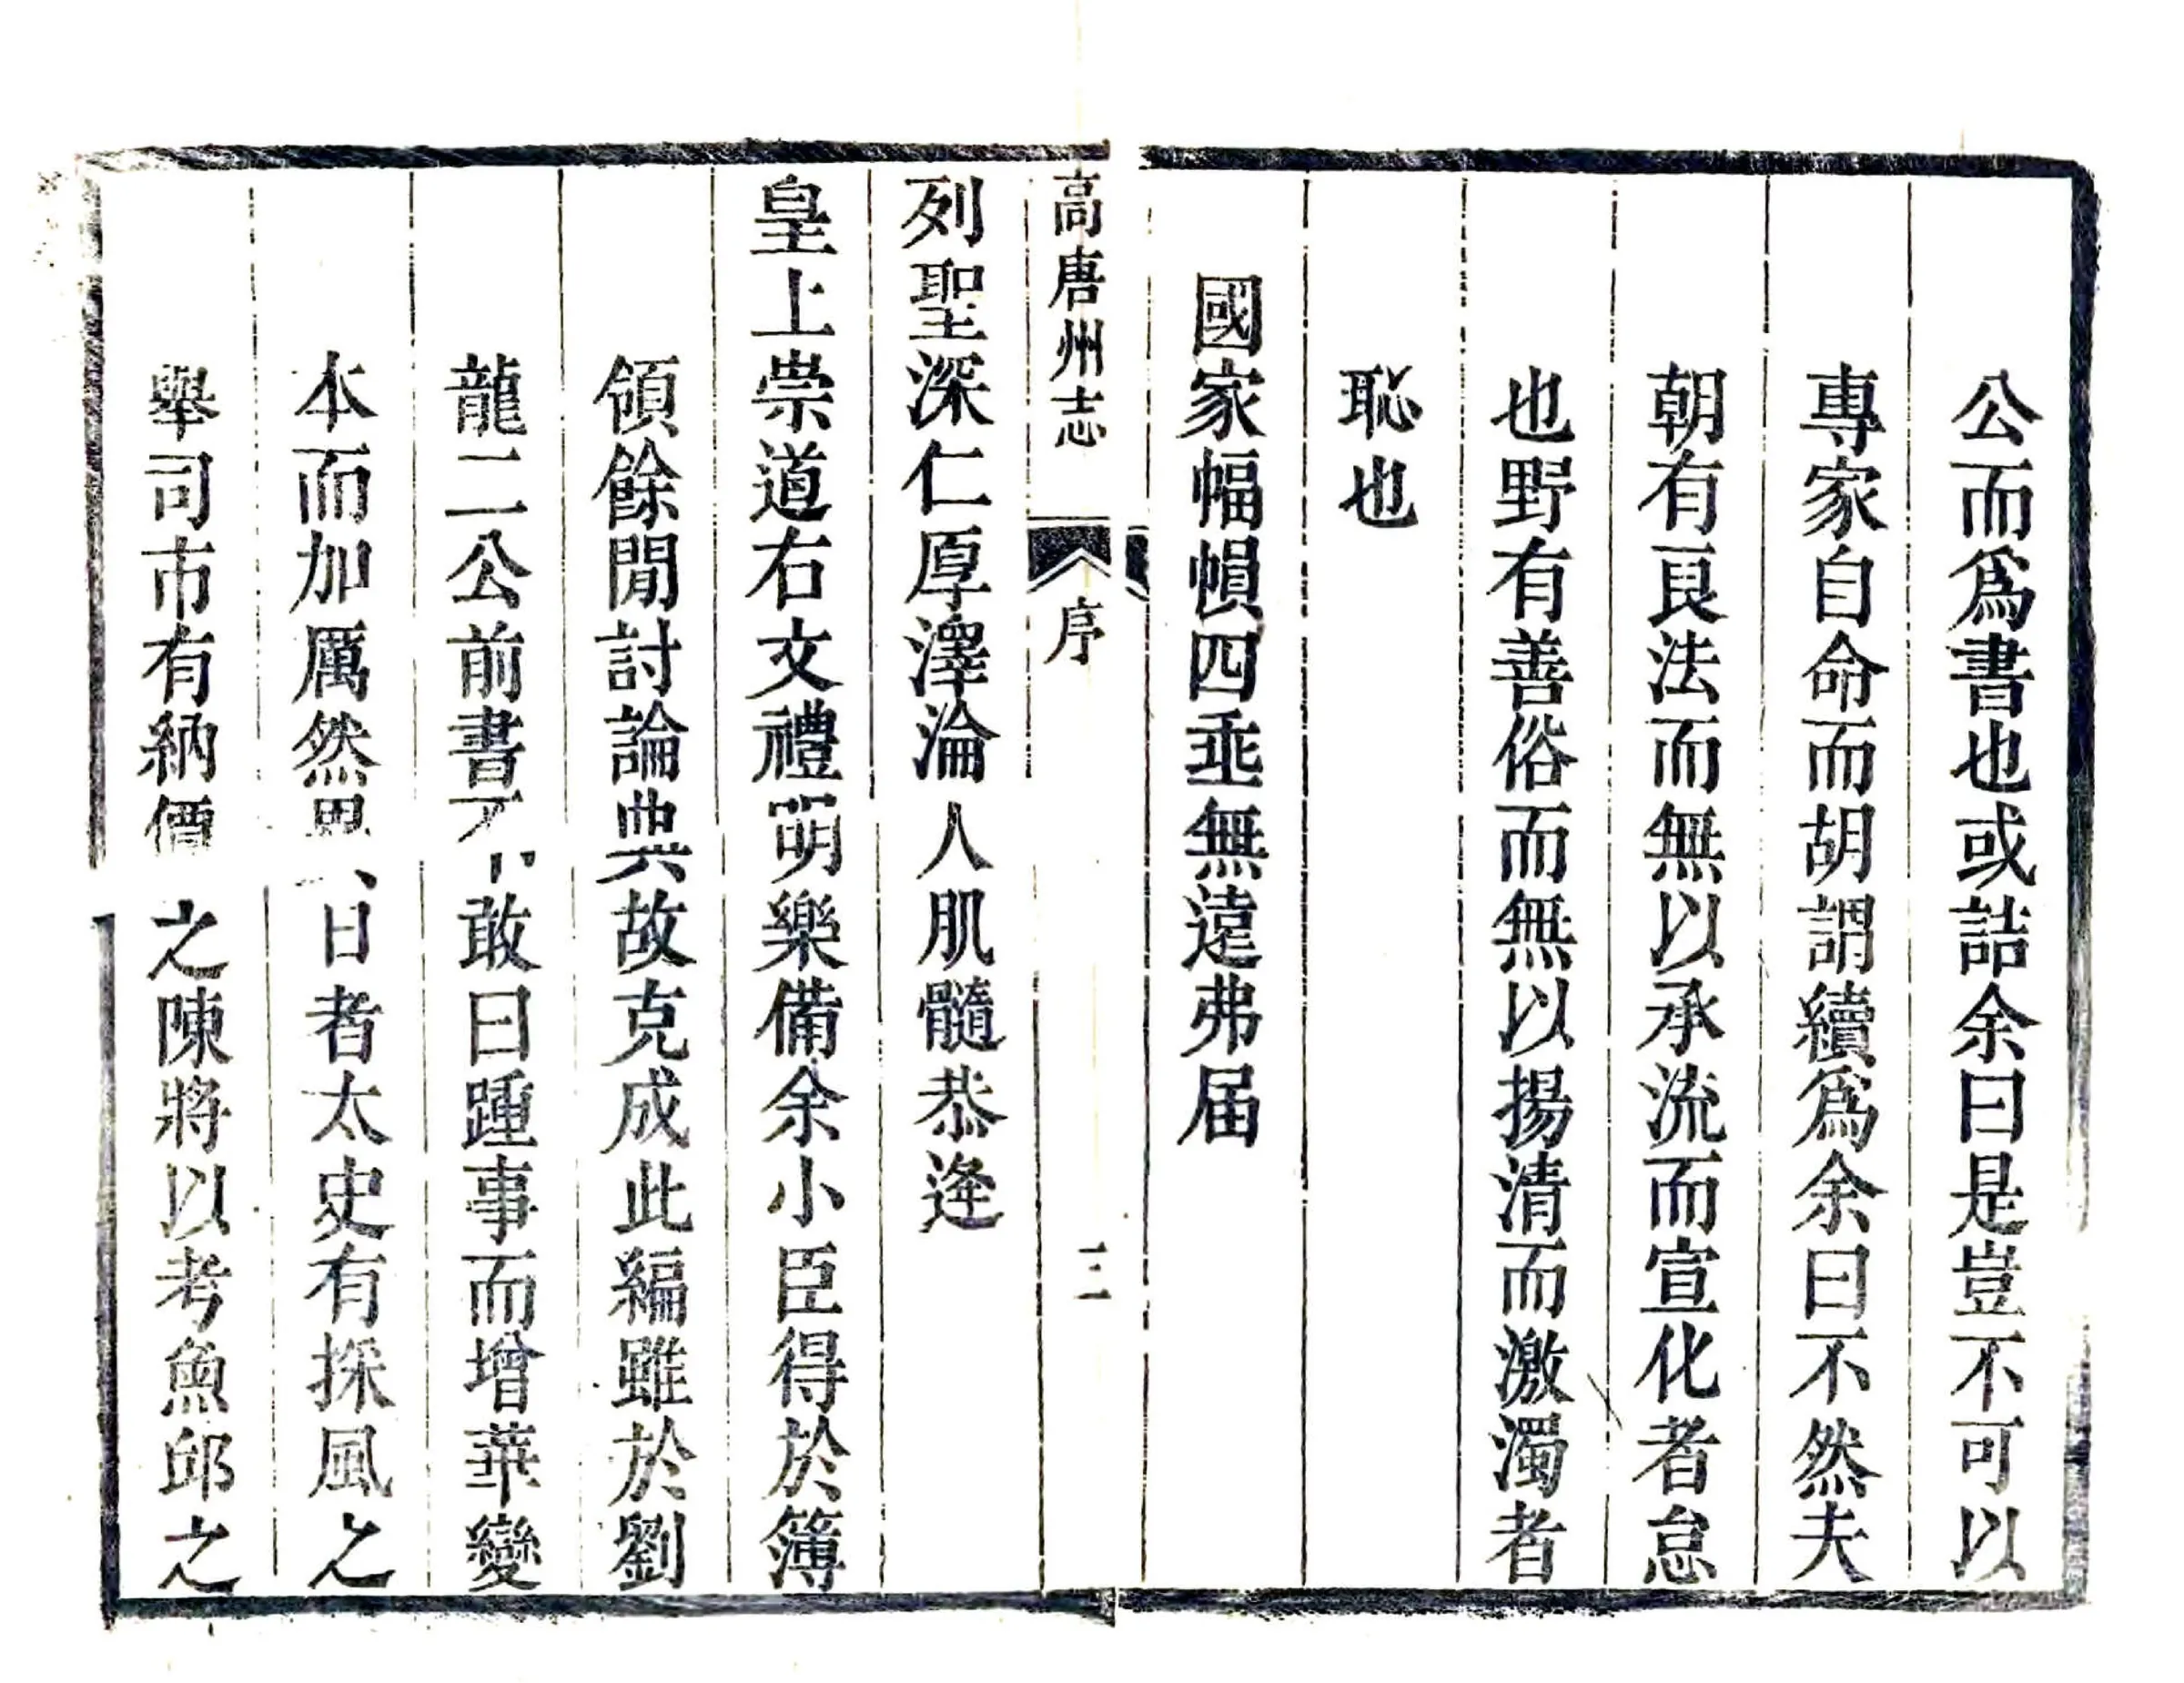 公而爲書也或詰余曰是豈不可以
專家自命而胡謂續爲余曰不然夫
朝有良法而無以承流而宣化者怠
也野有善俗而無以揚清而激濁者
恥也
國家幅幀四垂無遠弗届
高唐州志 序 三
列聖深仁厚澤淪人肌髓恭逢
皇上崇道右文禮明樂備余小臣得於簿
領餘閒討論典故克成此編雖於劉
龍二公前書不敢曰踵事而增華變
本而加厲然 日者太史有採風之
舉司市有納價之陳將以考魚邱之